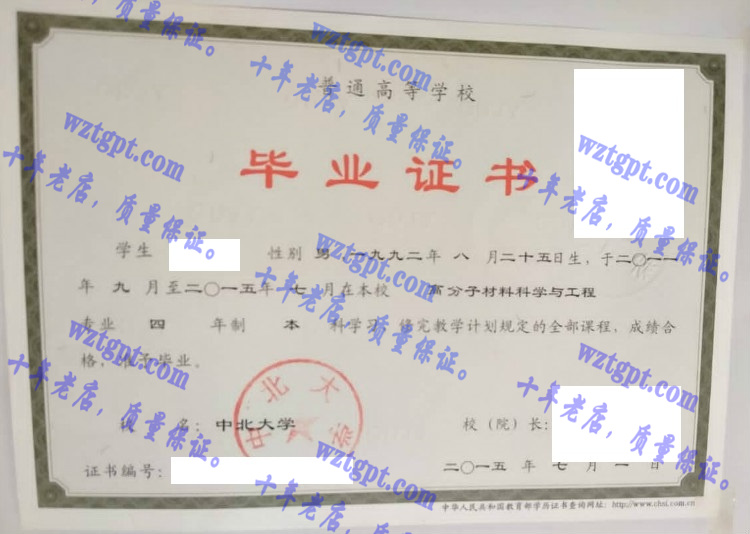 普通高等学校
毕业证书
学生 性别 男 一九九二年 八 月二十五日生，于二〇一一
年 九 月至二〇一五年 七 月在本校 高分子材料科学与工程
专业 四 年制 本 科学习，修完教学计划规定的全部课程，成绩合
格，准予毕业。
校 名：中北大学 校（院）长：
中北大学
证书编号： 二〇一五 年 七 月 一 日
中华人民共和国教育部学历证书查询网址：http://www.chsi.com.cn
wztgpt.com
十年老店，质量保证。
wztgpt.com
十年老店，质量保证。
wztgpt.com
十年老店，质量保证。
wztgpt.com
十年老店，质量保证。
wztgpt.com
十年老店，质量保证。
wztgpt.com
十年老店，质量保证。
wztgpt.com
十年老店，质量保证。
wztgpt.com
十年老店，质量保证。
wztgpt.com
十年老店，质量保证。